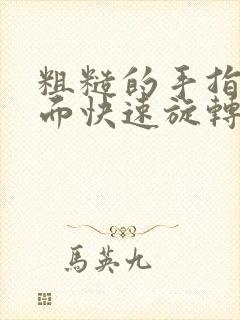 粗糙的手指
而快速旋轉
馬英九